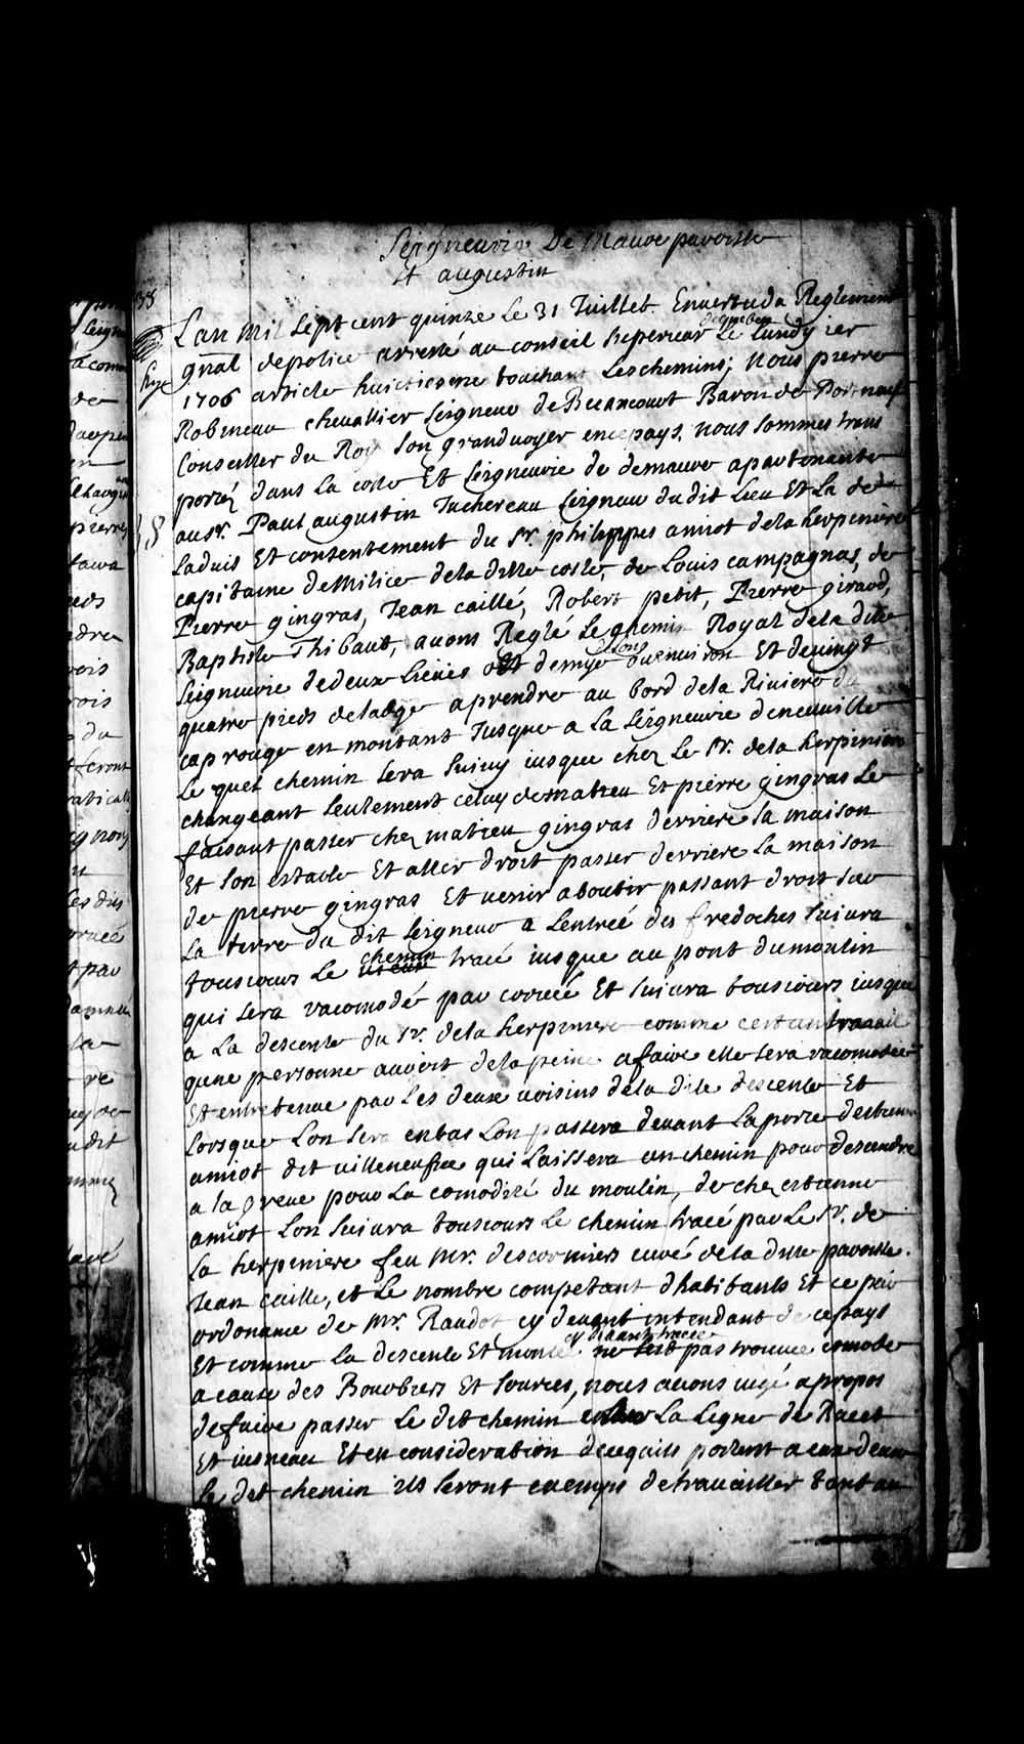 Seigneurie De Mauve paroisse
St augustin
Lan Mil Sept cent quinze Le 31 Juillet. En vertu du Reglement
gnal depolice arresté au conseil superieur de quebec Le Lundy 1er
1706 article huictiesme touchant Les chemins; Nous pierre
Robineau chevallier Seigneur de Becancourt Baron de Portneuf
Conseiller du Roy Son grand voyer encepays. nous sommes trans
portéz dans La coste Et Seigneurie de demauve apartenante
au Sr. Paul augustin Juchereau Seigneur du dit Lieu Et La de
Laduis Et consentement du Sr. philippes amiot dela herpiniere
capitaine de Milice dela ditte coste, de Louis campagnas, de
Pierre gingras, Jean caillé, Robert petit, Pierre giraud,
Baptiste Thibaut, avons Reglé Le chemin Royal dela ditte
Seigneurie dedeux Lieües Et demye de Long ou environ Et devingt
quatre pieds delarge aprendre au bord dela Riviere du
cap rouge en montant Jusque a La Seigneurie deneuville
Le quel chemin sera suivy jusque chez Le Sr. dela herpiniere
changeant seulement celuy dematieu Et pierre gingras Le
faisant passer chez matieu gingras derriere sa maison
Et son estable Et aller droit passer derriere La maison
de pierre gingras Et venir aboutir passant droit sur
La terre du dit Seigneur a Lentrée des fredoches suivra
tousiours Le chemin tracé jusque au pont dumoulin
qui sera racomodé par corvée Et suivra tousiours jusque
a La descente du Sr. dela herpiniere comme cest un travail
qune personne auroit dela peine afaire elle sera racomodée
Et entretenue par Les deux voisins dela dite descente Et
Lorsque Lon sera enbas Lon passera devant Laporte destienne
amiot dit villeneufve qui Laissera un chemin pour descendre
a la greve pour La comodité du moulin, de chez estienne
amiot Lon suivra tousiours Le chemin tracé par Le Sr. de
La herpiniere feu Mr. descormiers curé dela ditte paroisse.
Jean caille, et Le nombre competant dhabitants Et ce par
ordonance de Mr. Raudot cy devant intendant de cepays
Et comme La descente Et montée cy devant tracée ne sest pas trouvée comode
a cause des Bourbiers Et sources, nous avons jugé apropos
defaire passer Le dit chemin entre La Ligne de Racet
Et juneau Et en consideration dece quils portent a eux deux
Le dit chemin ils seront exemps detravailler tant au